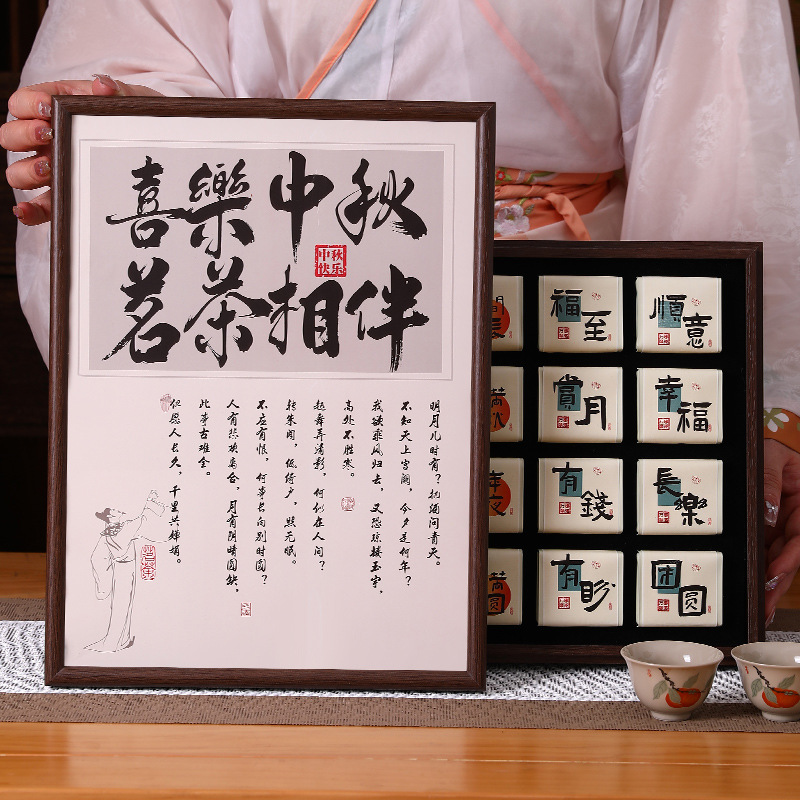 喜樂中秋
茗茶相伴
中秋
快乐
明月几时有？把酒问青天。
不知天上宫阙，今夕是何年？
我欲乘风归去，又恐琼楼玉宇，
高处不胜寒。
起舞弄清影，何似在人间？
转朱阁，低绮户，照无眠。
不应有恨，何事长向别时圆？
人有悲欢离合，月有阴晴圆缺，
此事古难全。
但愿人长久，千里共婵娟。
福至
順意
賞月
幸福
有錢
長樂
有盼
团圆